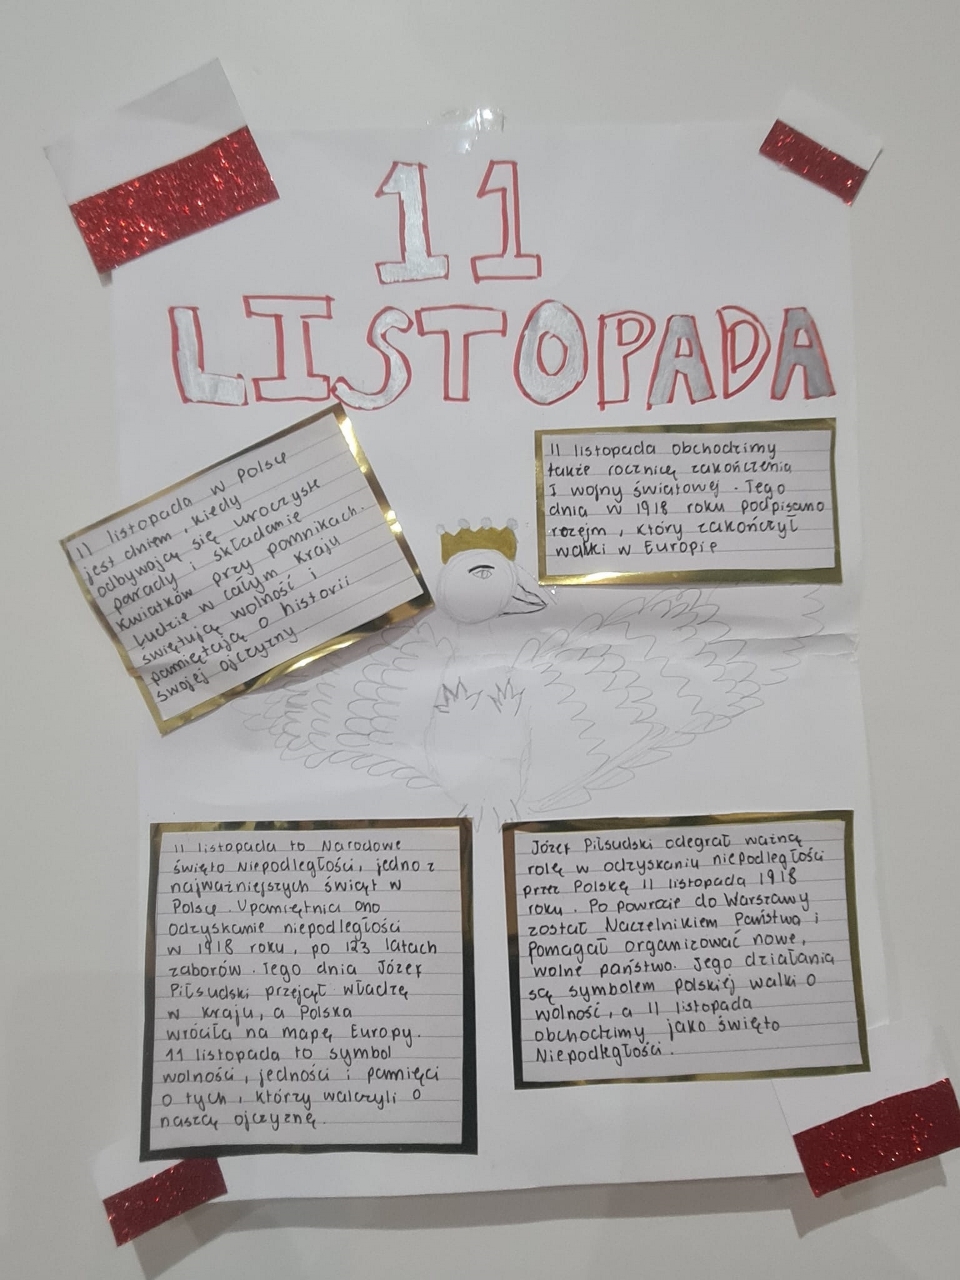 11
LISTOPADA
11 listopada w Polsce
jest dniem, kiedy
odbywają się uroczyste
parady i składanie
kwiatków przy pomnikach.
Ludzie w całym kraju
świętują wolność i
pamiętają o historii
swojej ojczyzny
11 listopada obchodzimy
także rocznicę zakończenia
I wojny światowej. Tego
dnia w 1918 roku podpisano
rozejm, który zakończył
walki w Europie
11 listopada to Narodowe
święto Niepodległości, jedno z
najważniejszych świąt w
Polsce. Upamiętnia ono
odzyskanie niepodległości
w 1918 roku, po 123 latach
zaborów. Tego dnia Józef
Piłsudski przejął władzę
w kraju, a Polska
wróciła na mapę Europy.
11 listopada to symbol
wolności, jedności i pamięci
o tych, którzy walczyli o
naszą ojczyznę.
Józef Piłsudski odegrał ważną
rolę w odzyskaniu niepodległości
przez Polskę 11 listopada 1918
roku. Po powrocie do Warszawy
został Naczelnikiem Państwa i
pomagał organizować nowe,
wolne państwo. Jego działania
są symbolem polskiej walki o
wolność, a 11 listopada
obchodzimy jako święto
Niepodległości.